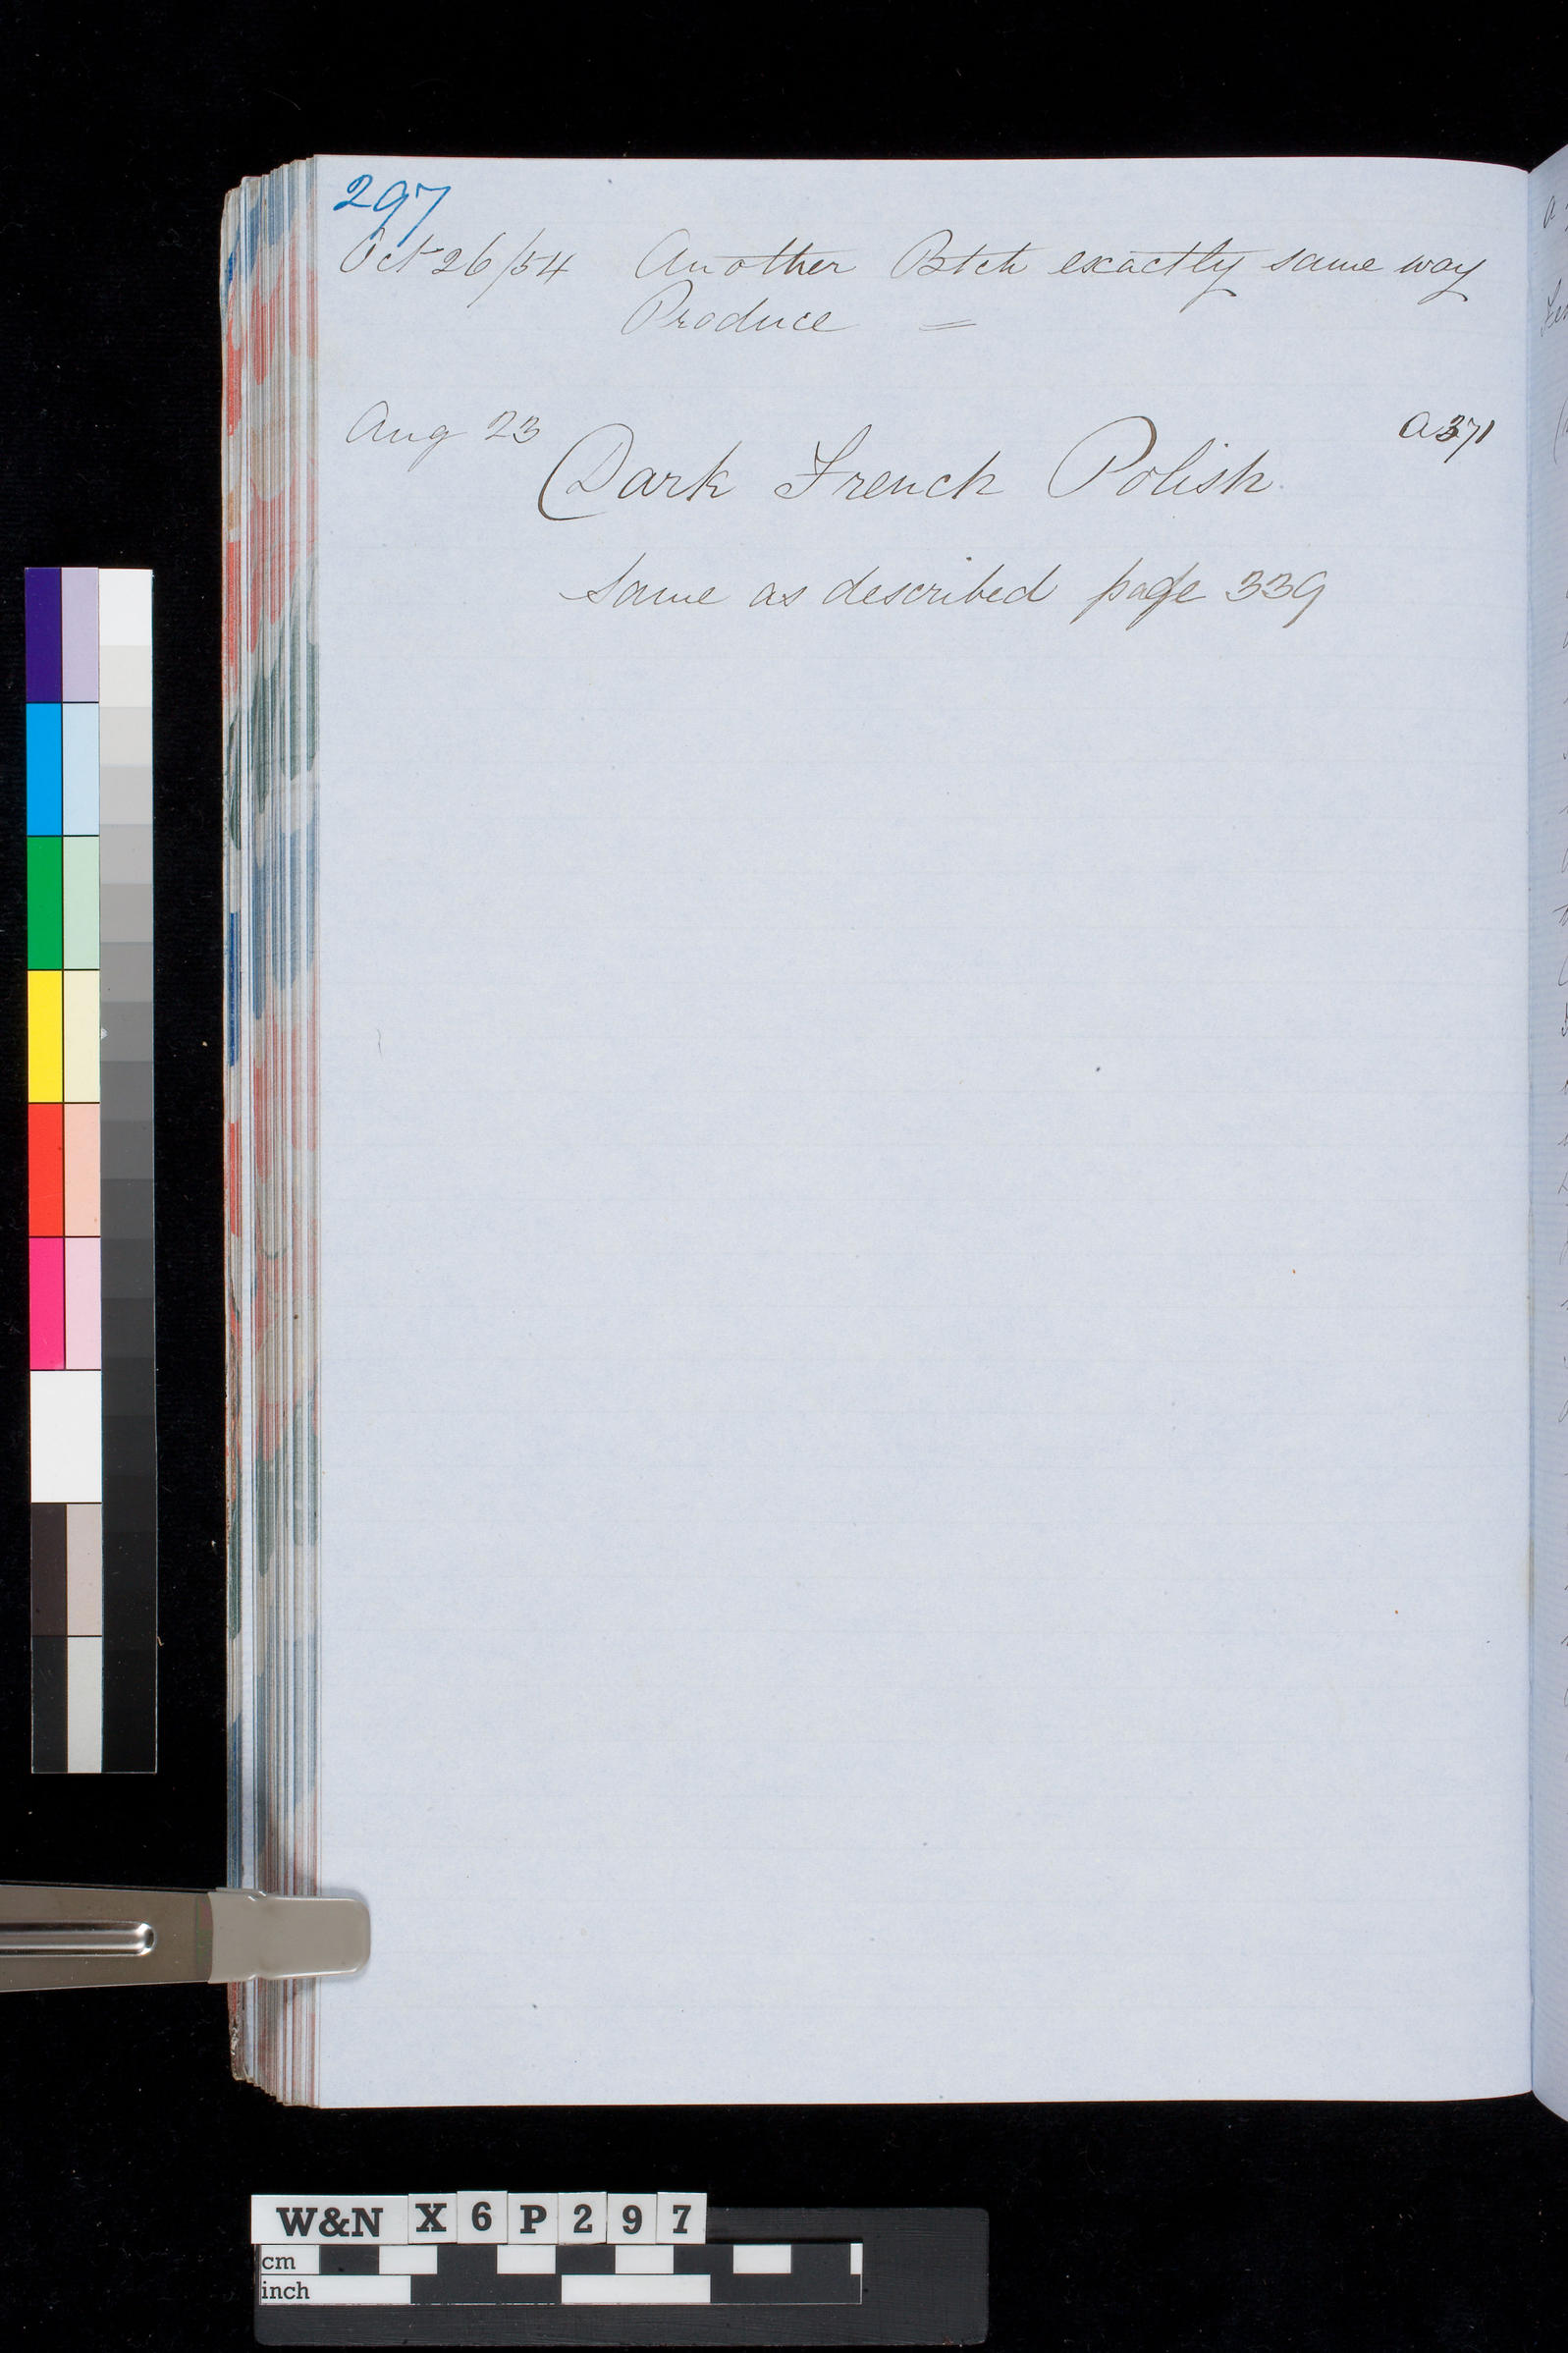 297
Oct 26/54 Another Btch exactly same way
Produce =
Aug 23 a371
Dark French Polish
Same as described page 339
W&N X6P297
cm
inch